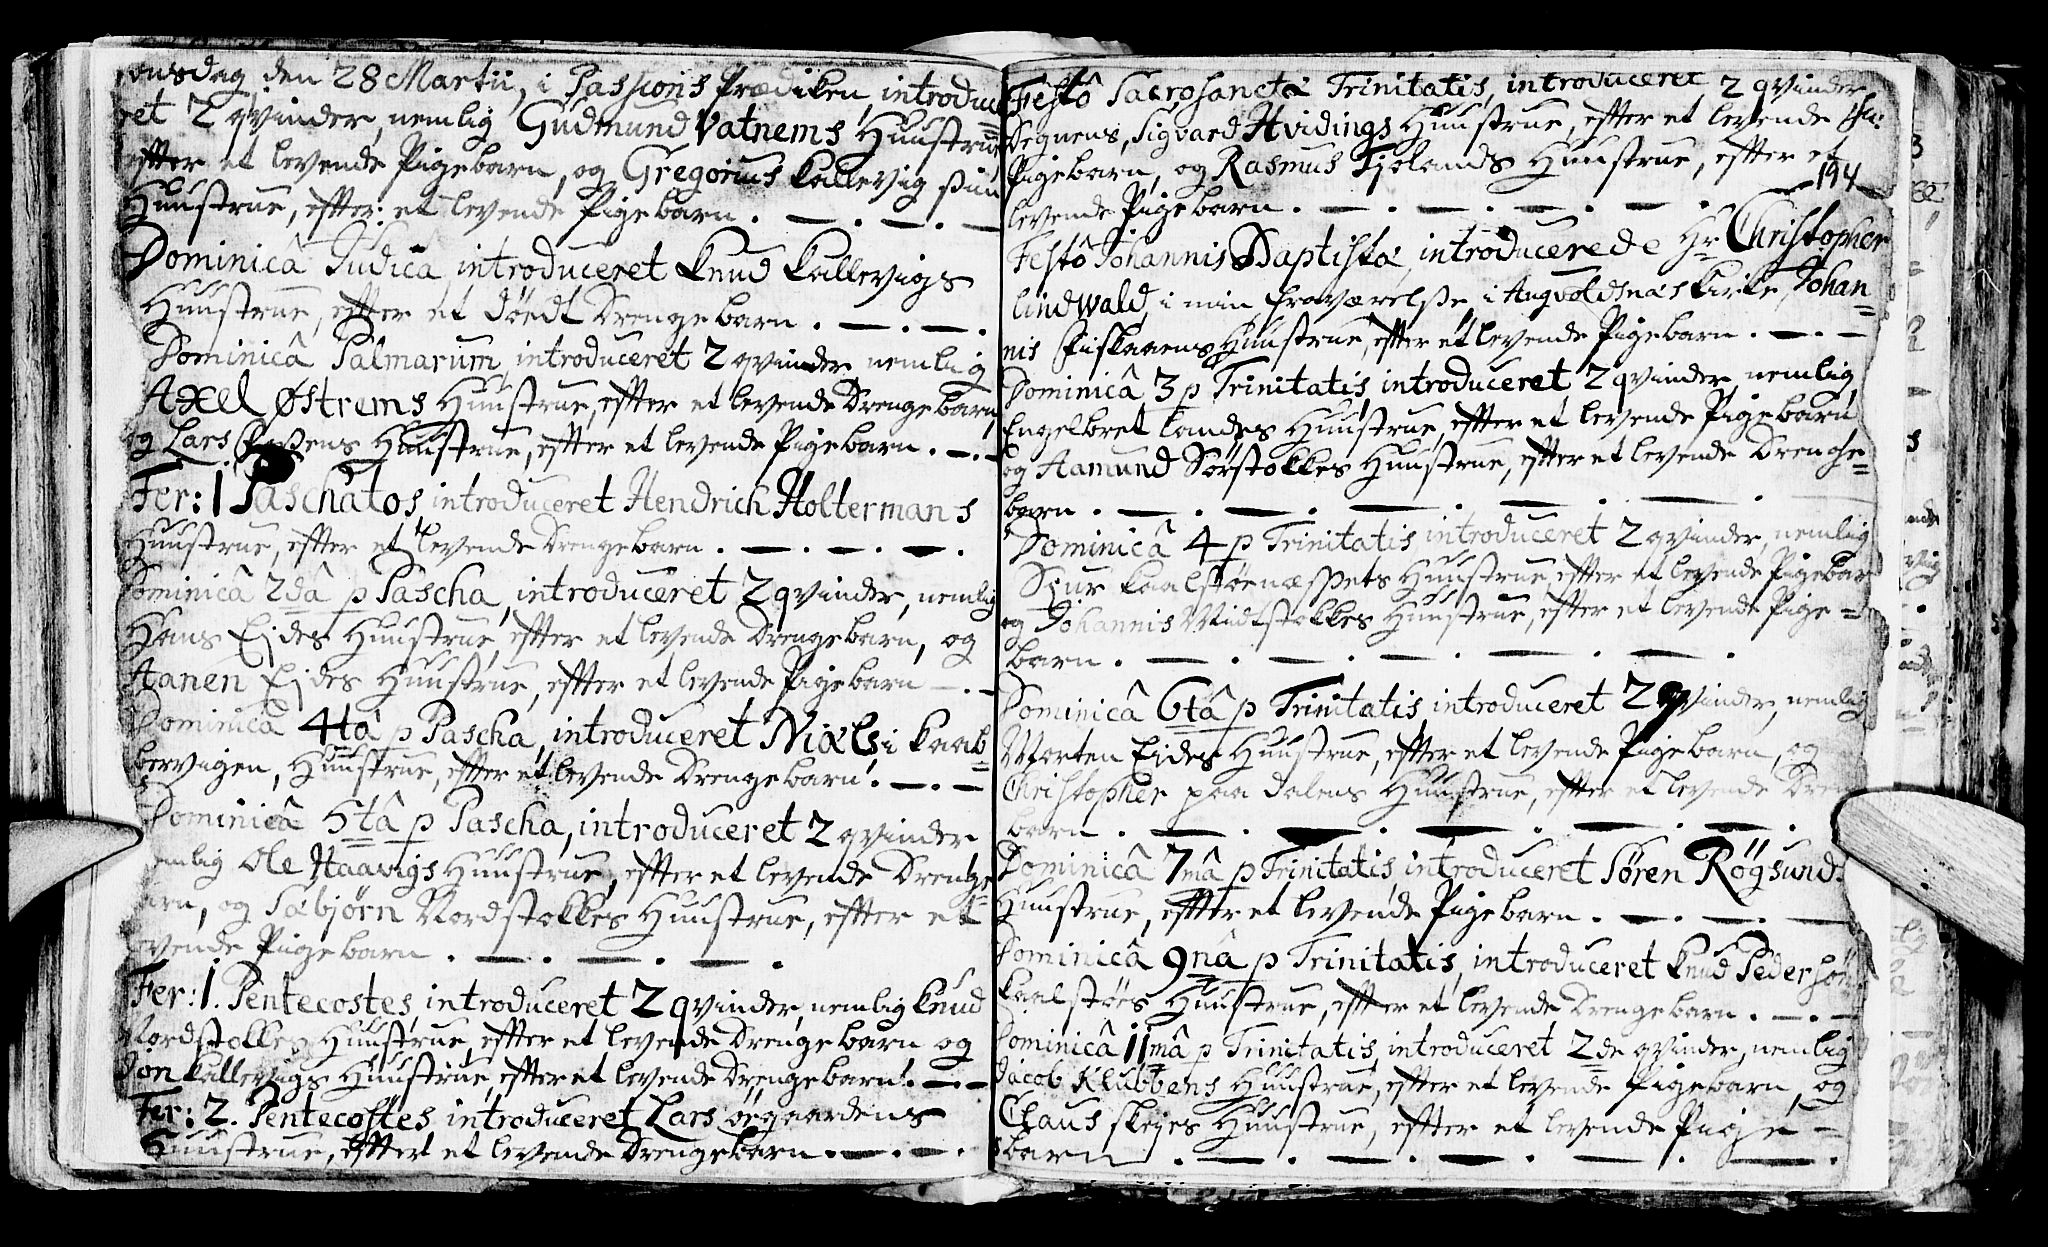 onsdag den 28 Martii, i Passions Prædiken, introduce=
ret 2 qvinder, nemlig Gudmund Vatnems Huustrue
efter et levende Pigebarn, og Gregorius Kallevig siin
Huustrue, efter et levende Pigebarn.
Dominicâ Judica, introduceret Knud Kallevigs
Huustrue, efter et døedt Drengebarn.
Dominicâ Palmarum, introduceret 2 qvinder nemlig
Axel Østrems Huustrue, efter et levende Drengebarn,
og Lars Huustrue, efter et levende Pigebarn.
Fer: 1 Paschatos, introduceret Hendrich Holtermans
Huustrue, efter et levende Drengebarn.
Dominicâ 2dâ p Pascha, introduceret 2 qvinder, nemlig
Hans Eides Huustrue, efter et levende Drengebarn, og
Aanen Eides Huustrue, efter et levende Pigebarn
Dominicâ 4tâ p Pascha, introduceret Niæls i Kaab=
bervigen, Huustrue, efter et levende Drengebarn.
Dominicâ 5tâ p Pascha, introduceret 2 qvinder
emlig Ole Haavigs Huustrue, efter et levende Drenge=
arn, og Sæbjørn Nordstokkes Huustrue, efter et
evende Pigebarn.
Fer: 1. Pentecostes, introduceret 2 qvinder, nemlig Knud
Nordstokkes Huustrue, efter et levende Drengebarn og
Jon Kallevigs Huustrue, efter et levende Drengebarn.
Fer: 2. Pentecostes introduceret Lars øegaardens
Huustrue, efter et levende Drengebarn.
Festô Sacrosanctæ Trinitatis, introduceret 2 qvinder
Degnens, Sigvard Hvidings Huustrue, efter et levende
Pigebarn, og Rasmus Tjølands Huustrue, efter et
194
levende Pigebarn.
Festô Johannis Baptistæ, introducerede Hr Christopher
Lindwald, i min fraværelse i Augvoldsnæs Kirke, Johan=
nis Fiskaaens Huustrue, efter et levende Pigebarn.
Dominicâ 3 p Trinitatis, introduceret 2 qvinder, nemlig
Engelbret Landes Huustrue, efter et levende Pigebarn
og Aamund Sørstokkes Huustrue, efter et levende Drenge=
barn.
Dominicâ 4 p Trinitatis, introduceret 2 qvinder, nemlig
Siur Kaalstøenæssets Huustrue, efter et levende Pigebar
og Johannis Midtstokkes Huustrue, efter et levende Pige=
barn.
Dominicâ 6tâ p Trinitatis, introduceret 2 qvinder, nemlig
Morten Eides Huustrue, efter et levende Pigebarn, og
Christopher paa Dalens Huustrue, efter et levende Dren
barn.
Dominicâ 7mâ p Trinitatis, introduceret Søren Røgsunds
Huustrue, efter et levende Pigebarn.
Dominicâ 9nâ p Trinitatis, introduceret Knud Pedersøn
Kaalstøes Huustrue, efter et levende Drengebarn.
Dominicâ 11mâ p Trinitatis, introduceret 2de qvinder, nemlig
Jacob Klubbens Huustrue, efter et levende Pigebarn, og
Claus Skejes Huustrue, efter et levende Pige=
barn.